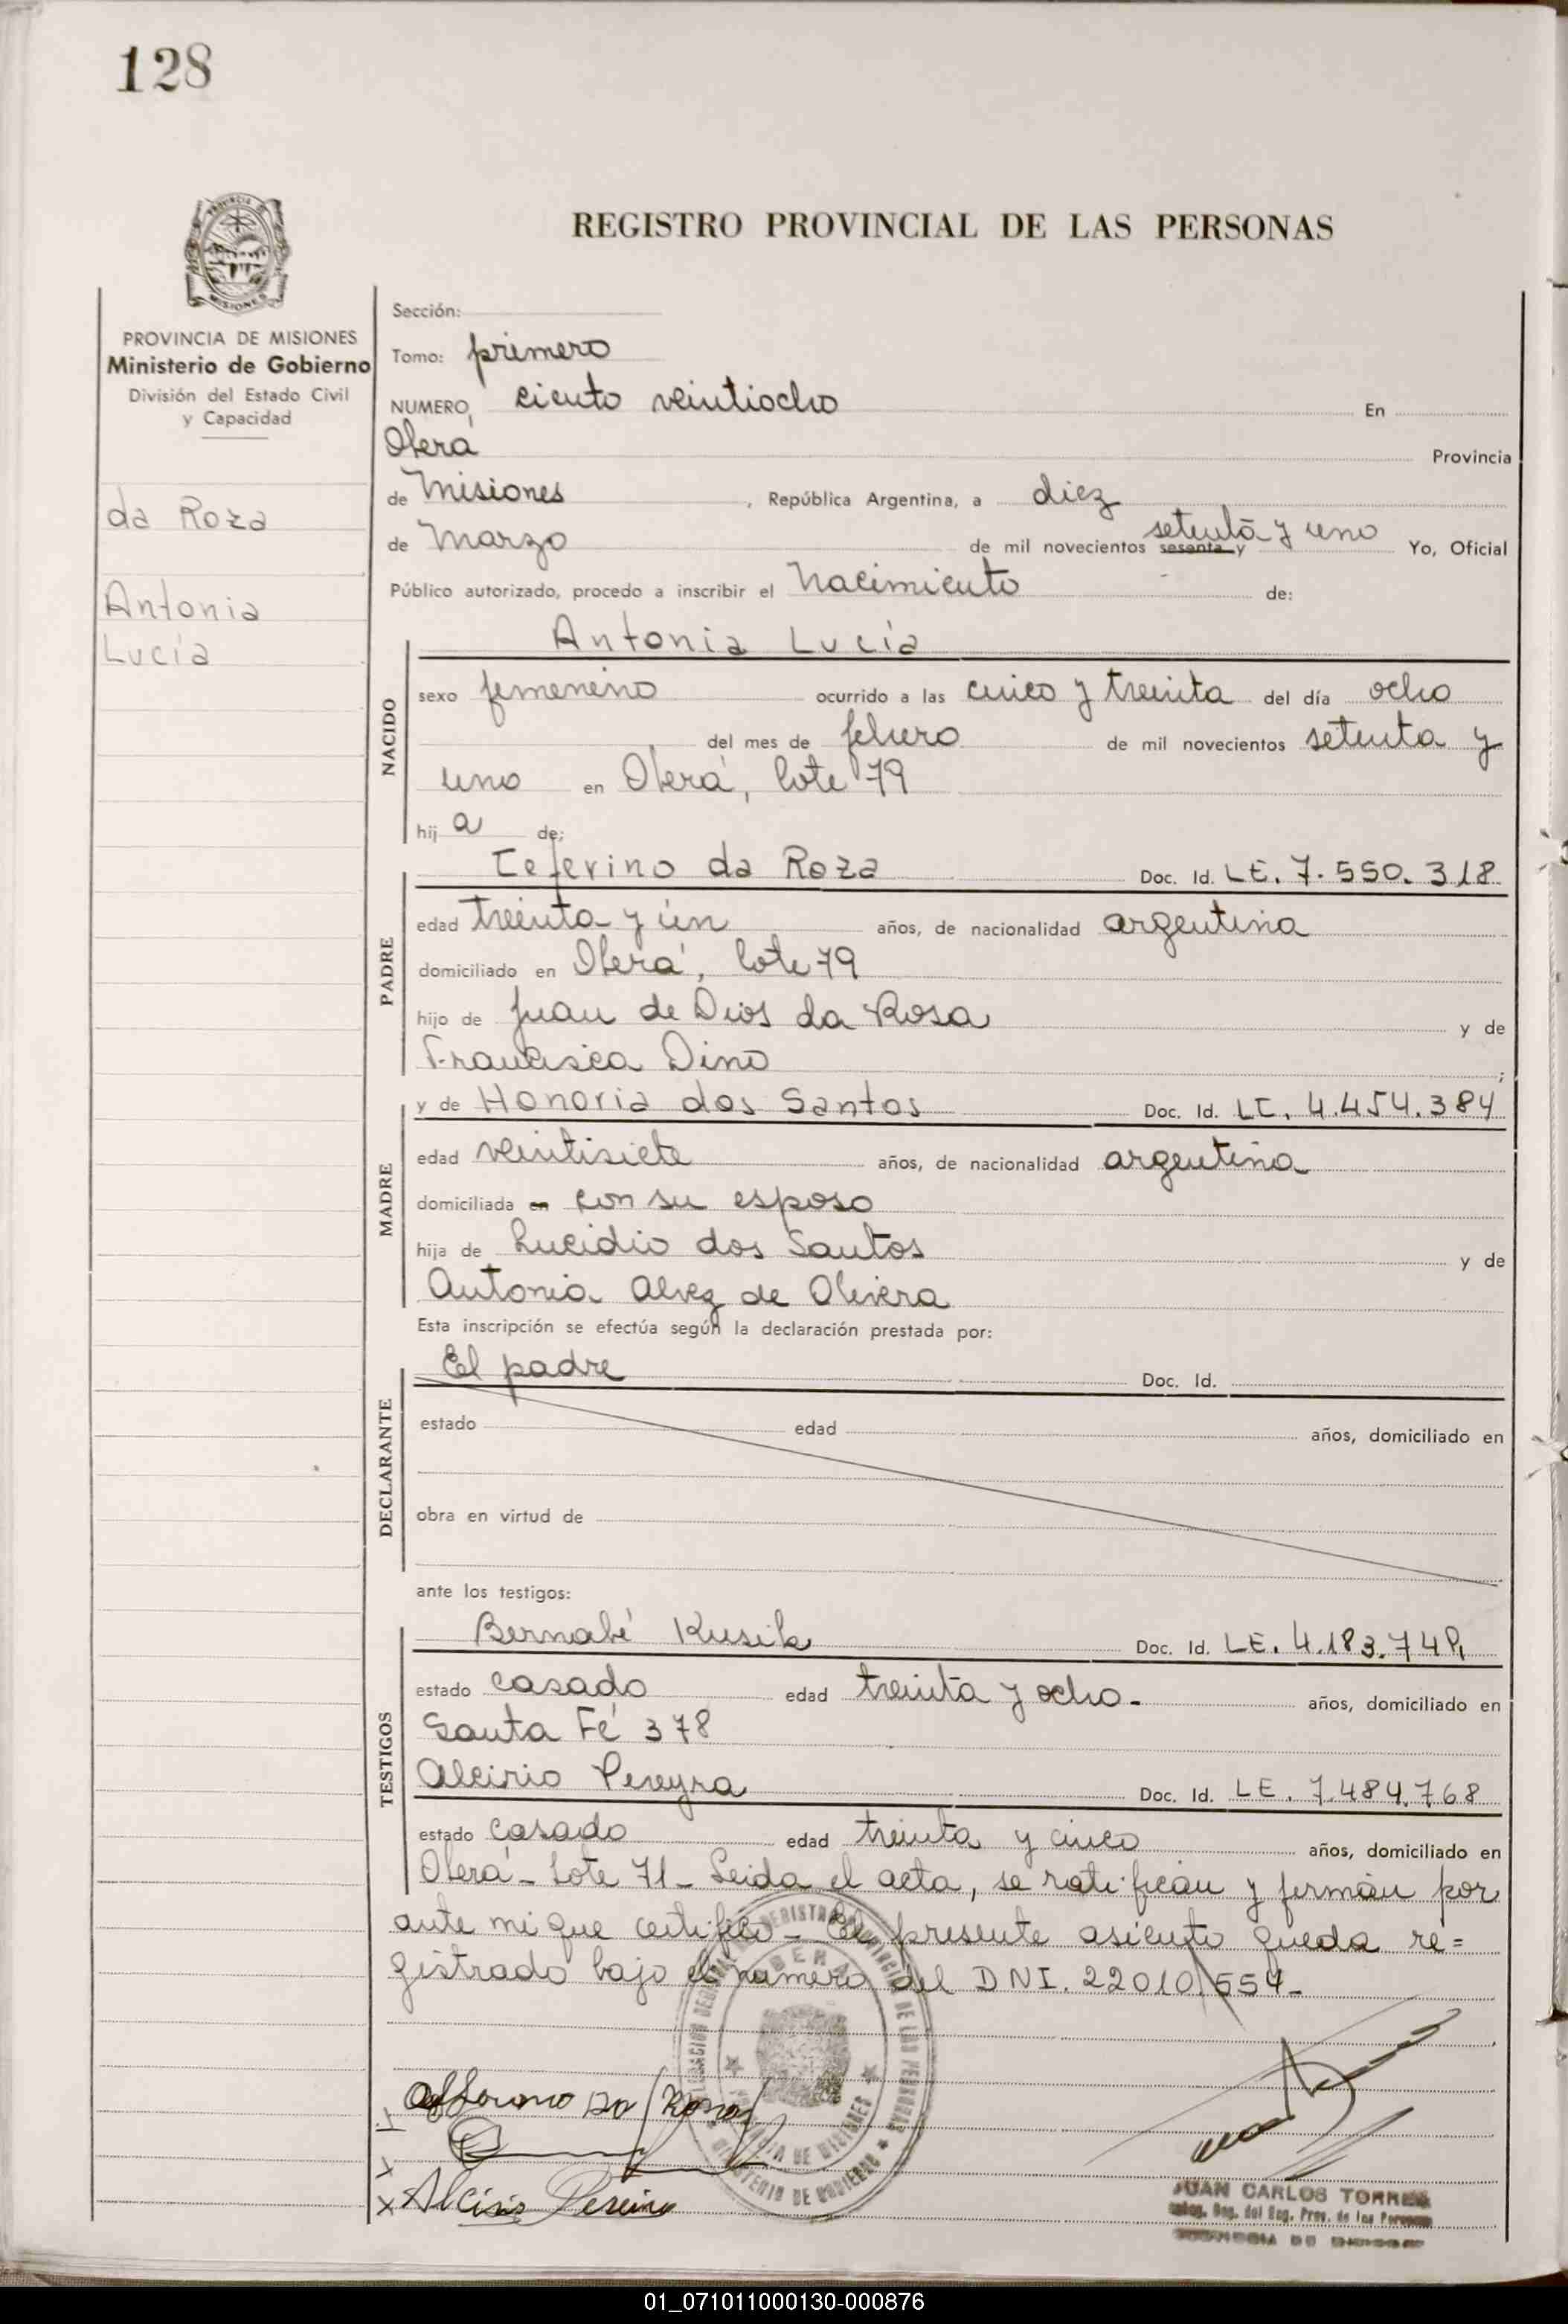 128
REGISTRO PROVINCIAL DE LAS PERSONAS
PROVINCIA DE MISIONES
Ministerio de Gobierno
División del Estado Civil
y Capacidad
da Roza
Antonia
Lucía
Sección:
Tomo: primero
NUMERO, ciento veintiocho En
Oberá Provincia
de Misiones, República Argentina, a diez
de Marzo de mil novecientos sesenta y setenta y uno Yo, Oficial
Público autorizado, procedo a inscribir el Nacimiento de:
Antonia Lucía
NACIDO
sexo femenino ocurrido a las cinco y treinta del día ocho
del mes de febrero de mil novecientos setenta y
uno en Oberá, lote 79
hij a de:
PADRE
Ceferino da Roza Doc. Id. LE. 7.550.318
edad treinta y un años, de nacionalidad argentina
domiciliado en Oberá, lote 79
hijo de Juan de Dios da Rosa y de
Francisca Dino ;
MADRE
y de Honoria dos Santos Doc. Id. LC. 4.454.384
edad veintisiete años, de nacionalidad argentina
domiciliada en con su esposo
hija de Lucidio dos Santos y de
Antonia Alvez de Olivera
Esta inscripción se efectúa según la declaración prestada por:
DECLARANTE
El padre Doc. Id.
estado edad años, domiciliado en
obra en virtud de
ante los testigos:
TESTIGOS
Bernabé Doc. Id. LE.
estado casado edad treinta y ocho.- años, domiciliado en
Santa Fé 378
Alcirio Pereyra Doc. Id. LE. 7.484.768
estado casado edad treinta y cinco años, domiciliado en
Oberá - Lote 71 - Leida el acta, se ratifican y firman por
ante mi que certifico - El presente asiento queda re=
gistrado bajo el numero del DNI. 22010.554-
Alcirio Pereira
JUAN CARLOS TORRES
01_071011000130-000876